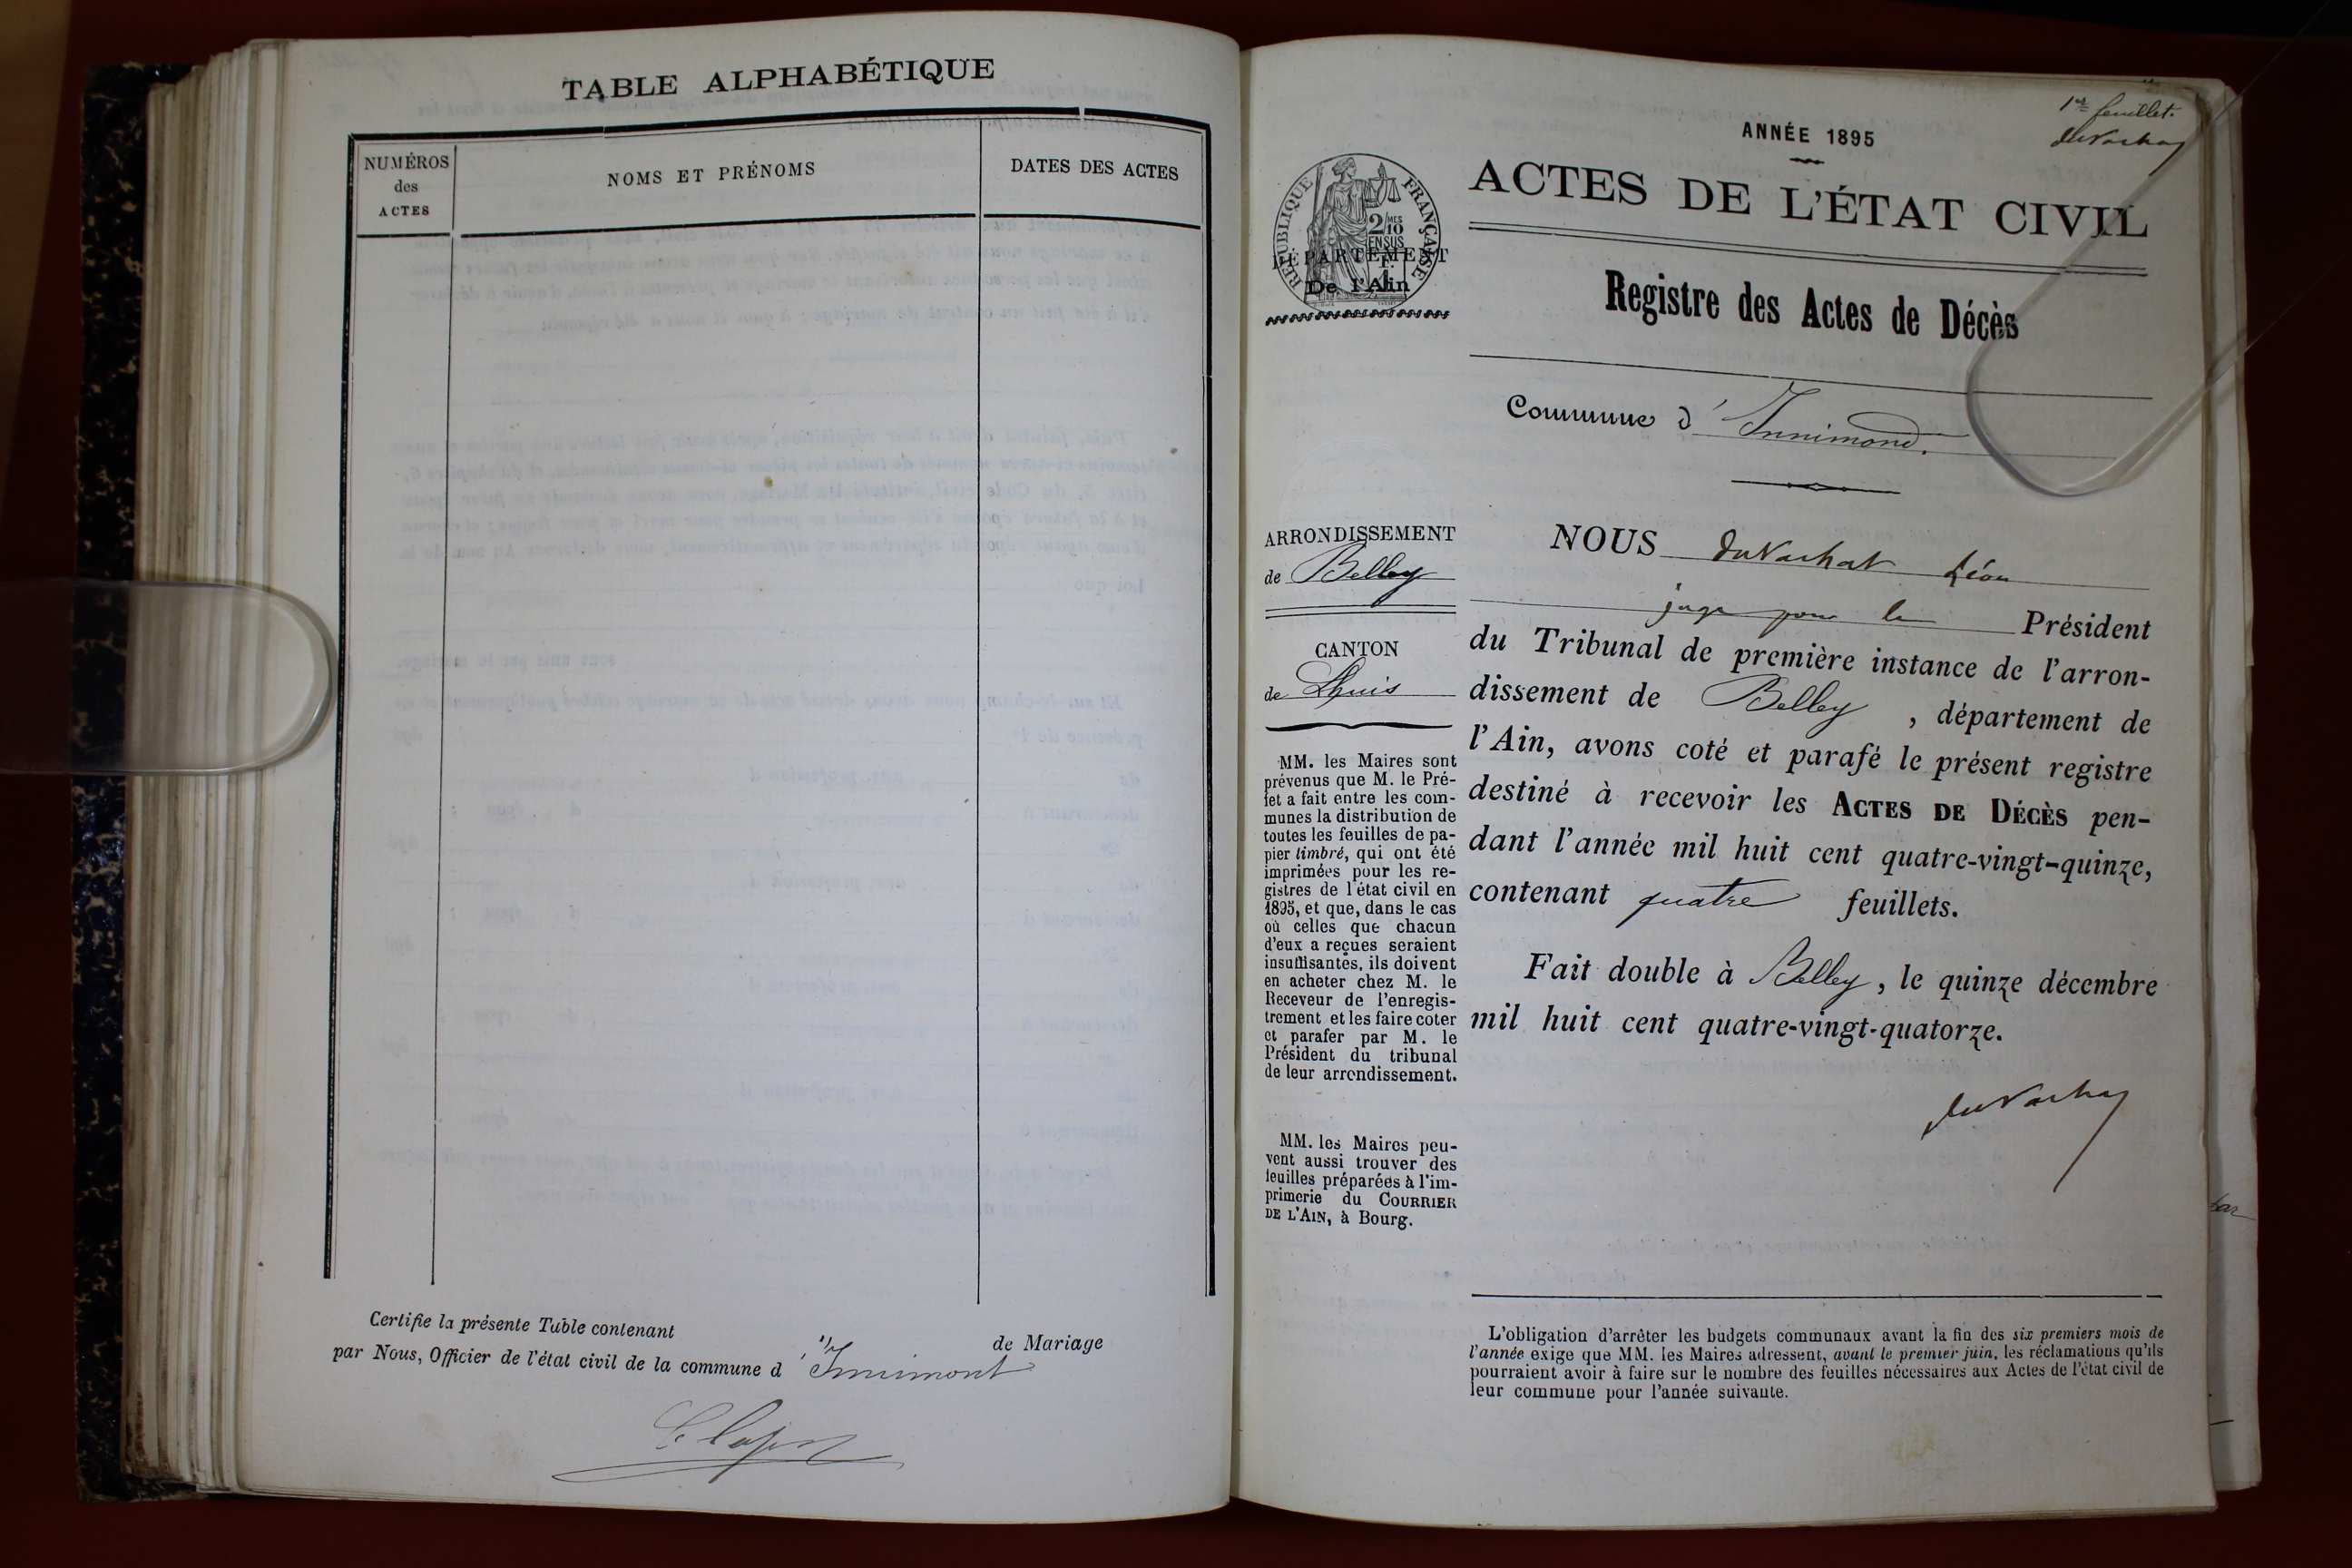 TABLE ALPHABÉTIQUE
NUMÉROS
des
ACTES
NOMS ET PRÉNOMS
DATES DES ACTES
Certifie la présente Table contenant " de Mariage
par Nous, Officier de l'état civil de la commune d'Innimont
1er feuillet.
ANNÉE 1895
ACTES DE L'ÉTAT CIVIL
RÉPUBLIQUE FRANÇAISE
2/10 MES
EN SUS
1 F.
DÉPARTEMENT
De l'Ain
Registre des Actes de Décès
Commune d'Innimond.
ARRONDISSEMENT
de Belley
CANTON
de Lhuis
MM. les Maires sont
prévenus que M. le Pré-
fet a fait entre les com-
munes la distribution de
toutes les feuilles de pa-
pier timbré, qui ont été
imprimées pour les re-
gistres de l'état civil en
1895, et que, dans le cas
où celles que chacun
d'eux a reçues seraient
insuffisantes, ils doivent
en acheter chez M. le
Receveur de l'enregis-
trement et les faire coter
et parafer par M. le
Président du tribunal
de leur arrondissement.
MM. les Maires peu-
vent aussi trouver des
feuilles préparées à l'im-
primerie du COURRIER
DE L'AIN, à Bourg.
NOUS duVachat Léon
juge pour le Président
du Tribunal de première instance de l'arron-
dissement de Belley, département de
l'Ain, avons coté et parafé le présent registre
destiné à recevoir les ACTES DE DÉCÈS pen-
dant l'année mil huit cent quatre-vingt-quinze,
contenant quatre feuillets.
Fait double à Belley, le quinze décembre
mil huit cent quatre-vingt-quatorze.
duVachat
L'obligation d'arrêter les budgets communaux avant la fin des six premiers mois de
l'année exige que MM. les Maires adressent, avant le premier juin, les réclamations qu'ils
pourraient avoir à faire sur le nombre des feuilles nécessaires aux Actes de l'état civil de
leur commune pour l'année suivante.